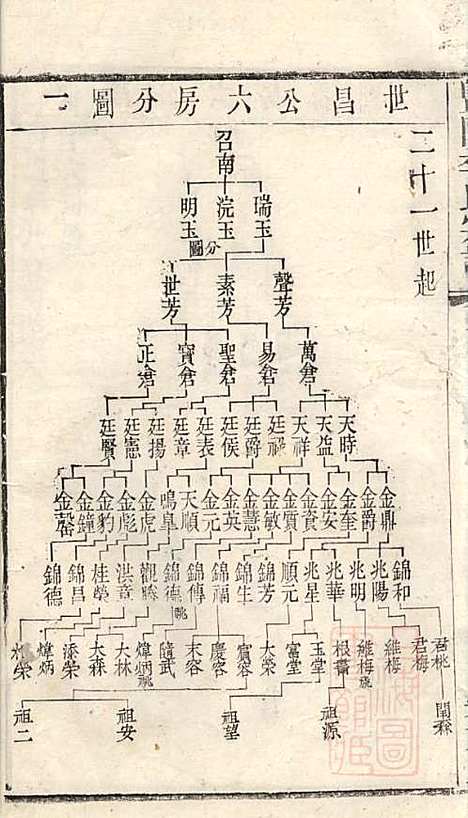 世昌公六房分圖一
二十一世起
召南
瑞玉 浣玉 明玉
分圖
聲芳 素芳 世芳
萬倉 易倉 聖倉 寶倉 正倉
天時 天益 天祥 廷祿 廷爵 廷侯 廷表 廷章 廷揚 廷憲 廷賢
金鼎 金爵 金奎 金安 金資 金質 金敏 金慧 金英 金元 天順 鳴臯 金虎 金彪 金豹 金鐘 金罄
錦和 兆陽 兆明 兆華 兆星 順元 錦芳 錦生 錦福 錦傳 錦德 觀勝 洪章 桂榮 錦昌 錦德
祧
君桃 君梅 維梅 維梅 根書 玉堂 富堂 大榮 賓容 慶容 末容 隨武 煒炳 大林 大森 添榮 煒炳
祧
祧
開霖 祖源 祖望 祖安 祖二